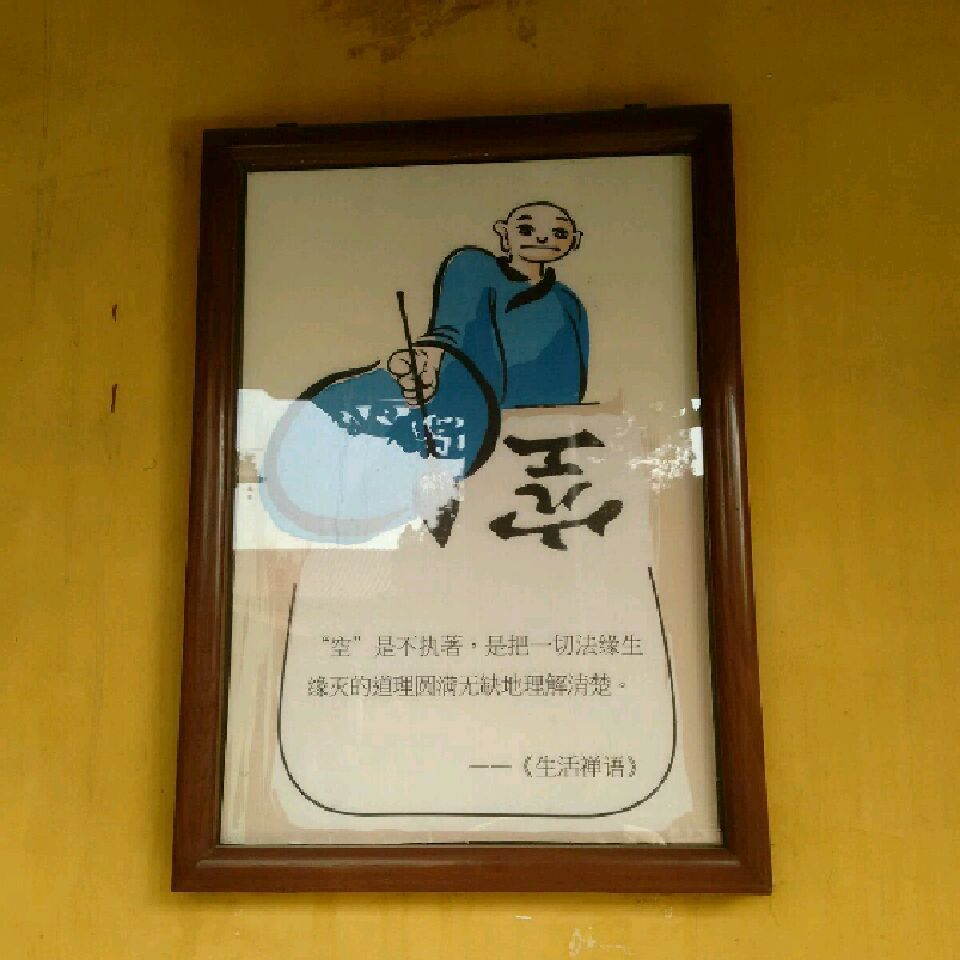 空
“空”是不执著，是把一切法缘生
缘灭的道理圆满无缺地理解清楚。
——《生活禅语》